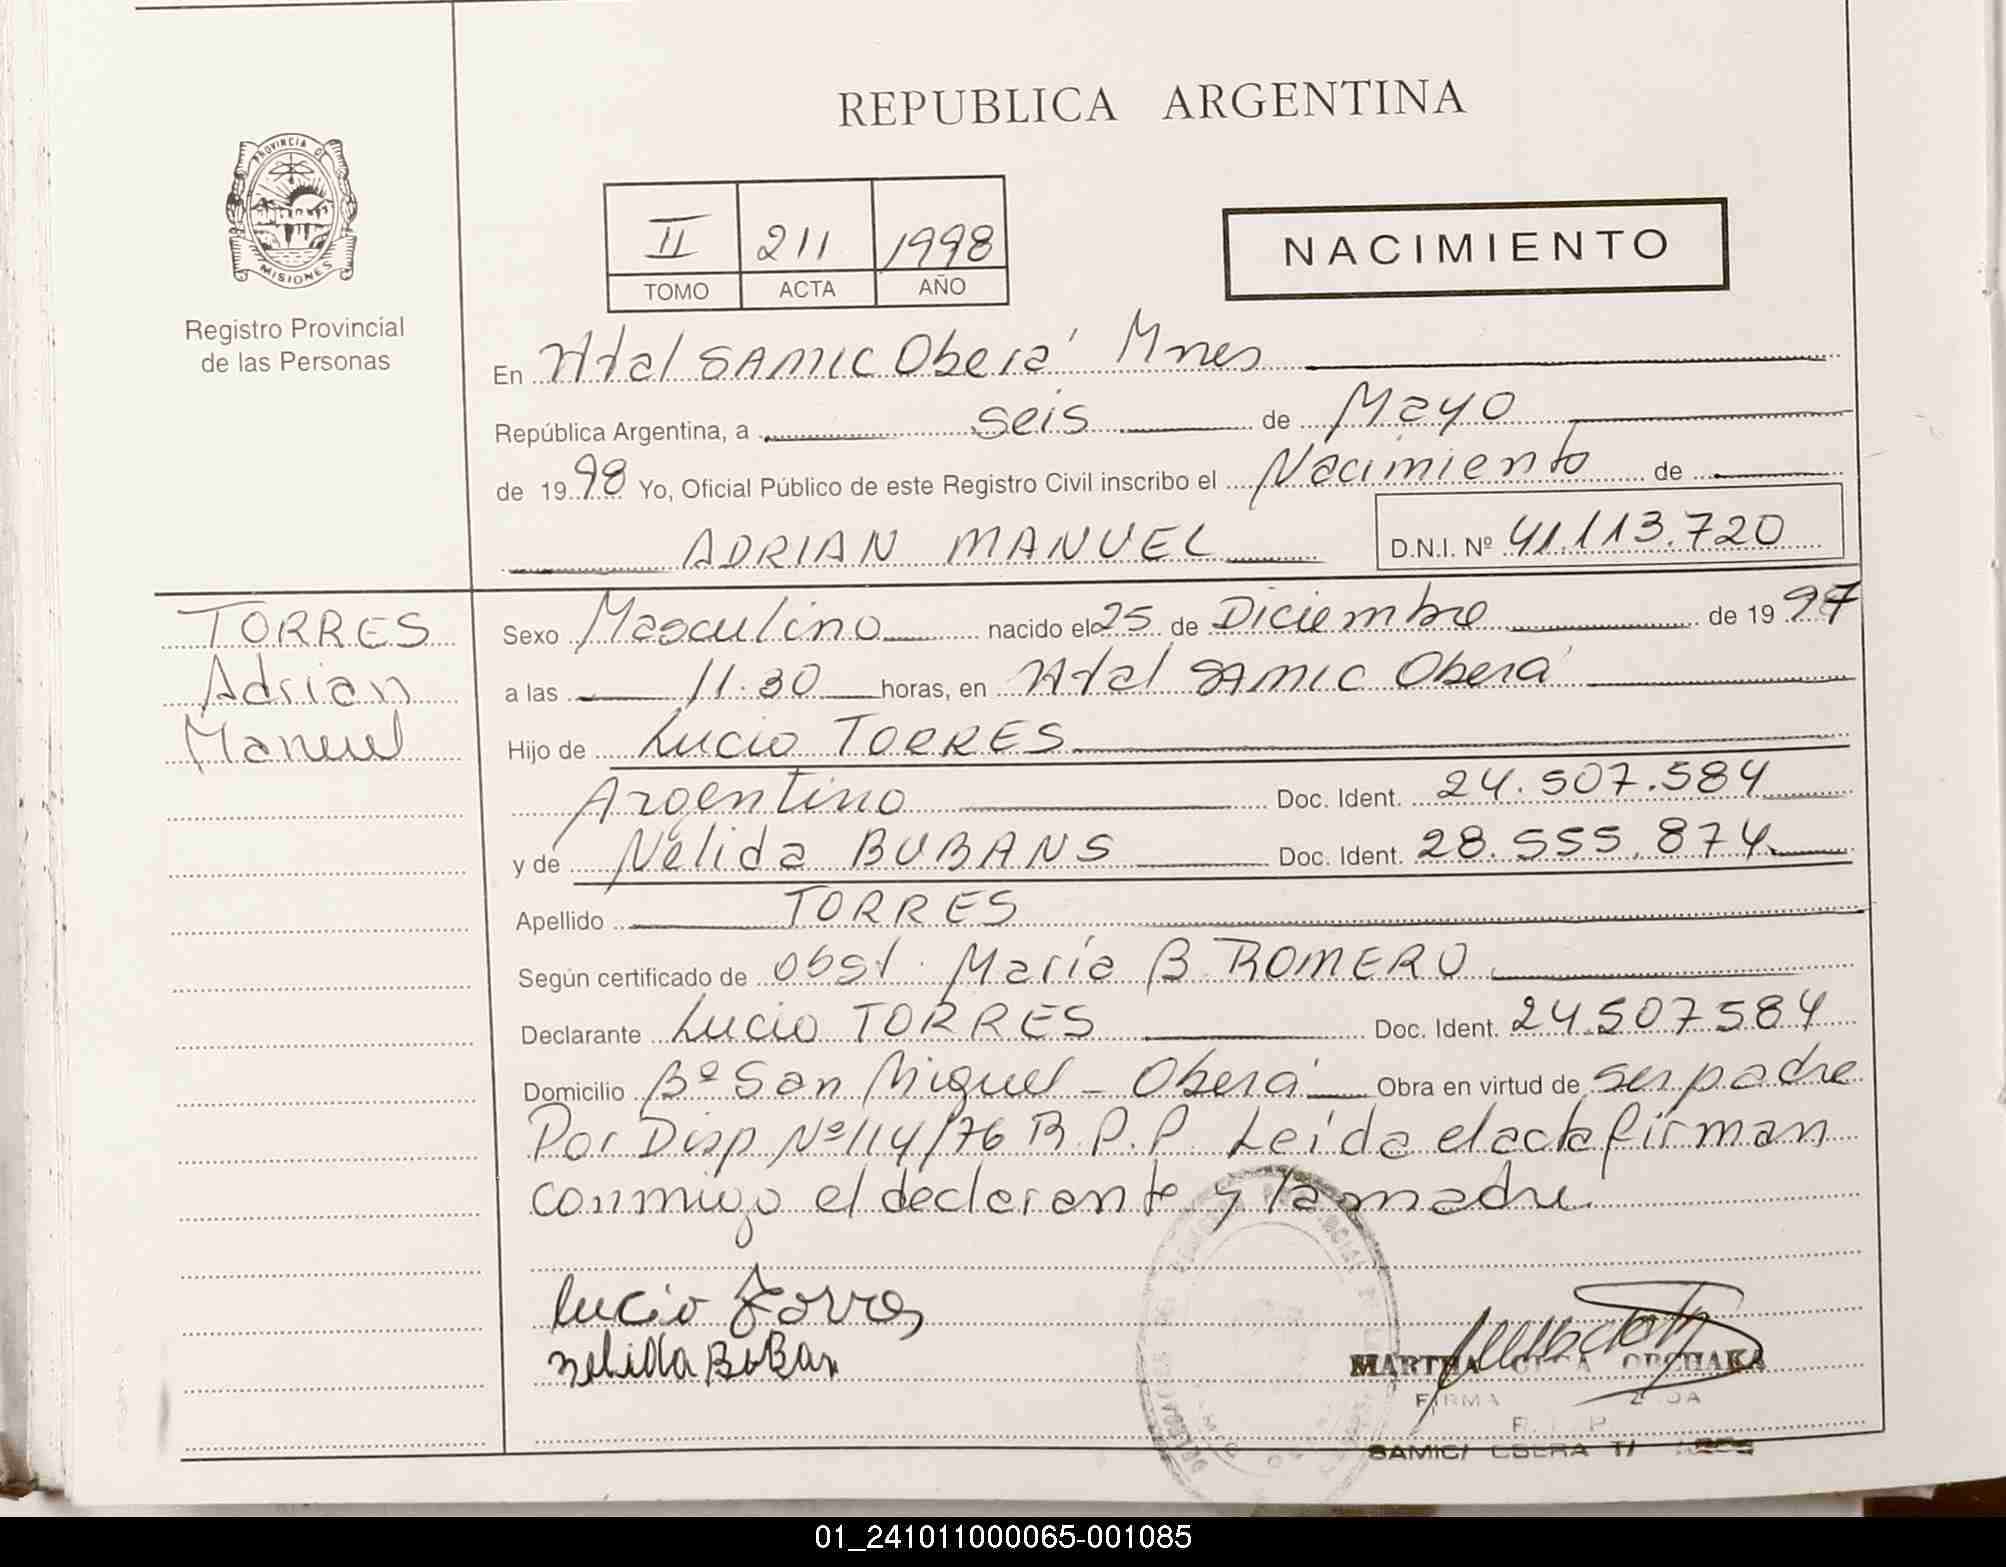 REPUBLICA ARGENTINA
PROVINCIA D
MISIONES
Registro Provincial
de las Personas
II 211 1998
TOMO ACTA AÑO
NACIMIENTO
En Htal SAMIC Oberá Mnes
República Argentina, a seis de Mayo
de 1998 Yo, Oficial Público de este Registro Civil inscribo el Nacimiento de
ADRIAN MANUEL D.N.I. Nº 41.113.720
TORRES
Adrian
Manuel
Sexo Masculino nacido el 25 de Diciembre de 1997
a las 11.30 horas, en Htal SAMIC Oberá
Hijo de Lucio TORRES
Argentino Doc. Ident. 24.507.584
y de Nélida BUBANS Doc. Ident. 28.555.874
Apellido TORRES
Según certificado de obst. María B. ROMERO
Declarante Lucio TORRES Doc. Ident. 24.507584
Domicilio Bº San Miguel - Oberá Obra en virtud de ser padre
Por Disp Nº 114/76 R.P.P. Leída el acta firman
conmigo el declarante y la madre
Lucio Torres
nelida BuBan
MARTHA
FIRMA
R. P.
SAMIC/ OBERA
01_241011000065-001085